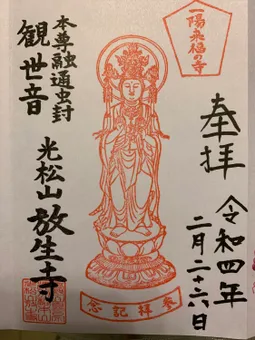 一陽来福の寺
奉拝
令和四年
二月二十六日
参拝記念
本尊融通虫封
観世音
光松山放生寺